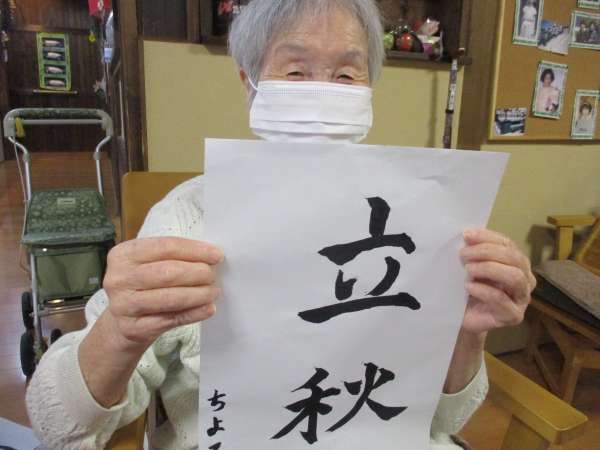 立秋
ちよ